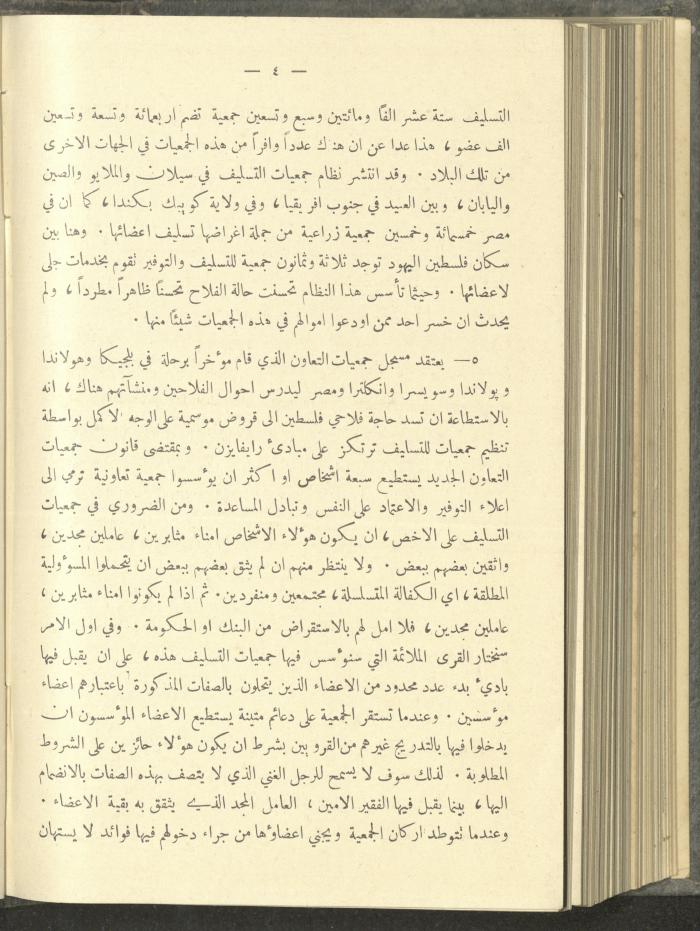 — ٤ —
التسليف ستة عشر الفًا ومائتين وسبع وتسعين جمعية تضم اربعمائة وتسعة وتسعين
الف عضو ، هذا عدا عن ان هناك عدداً وافراً من هذه الجمعيات في الجهات الاخرى
من تلك البلاد . وقد انتشر نظام جمعيات التسليف في سيلان والملايو والصين
واليابان ، وبين العبيد في جنوب افريقيا ، وفي ولاية كوبيك بكندا ، كما ان في
مصر خمسمائة وخمسين جمعية زراعية من جملة اغراضها تسليف اعضائها . وهنا بين
سكان فلسطين اليهود توجد ثلاثة وثمانون جمعية للتسليف والتوفير تقوم بخدمات جلى
لاعضائها . وحيثما تأسس هذا النظام تحسنت حالة الفلاح تحسنًا ظاهراً مطرداً ، ولم
يحدث ان خسر احد ممن اودعوا اموالهم في هذه الجمعيات شيئًا منها .
٥ — يعتقد مسجل جمعيات التعاون الذي قام مؤخراً برحلة في بلجيكا وهولاندا
وبولاندا وسويسرا وانكلترا ومصر ليدرس احوال الفلاحين ومنشآتهم هناك ، انه
بالاستطاعة ان تسد حاجة فلاحي فلسطين الى قروض موسمية على الوجه الاكمل بواسطة
تنظيم جمعيات للتسليف ترتكز على مبادئ رايفايزن . وبمقتضى قانون جمعيات
التعاون الجديد يستطيع سبعة اشخاص او اكثر ان يؤسسوا جمعية تعاونية ترمي الى
اعلاء التوفير والاعتماد على النفس وتبادل المساعدة . ومن الضروري في جمعيات
التسليف على الاخص ، ان يكون هؤلاء الاشخاص امناء مثابرين ، عاملين مجدين ،
واثقين بعضهم ببعض . ولا ينتظر منهم ان لم يثق بعضهم ببعض ان يتحملوا المسؤلية
المطلقة ، اي الكفالة المتسلسلة ، مجتمعين ومنفردين . ثم اذا لم يكونوا امناء مثابرين ،
عاملين مجدين ، فلا امل لهم بالاستقراض من البنك او الحكومة . وفي اول الامر
ستختار القرى الملائمة التي ستؤسس فيها جمعيات التسليف هذه ، على ان يقبل فيها
بادئ بدء عدد محدود من الاعضاء الذين يتحلون بالصفات المذكورة باعتبارهم اعضاء
مؤسسين . وعندما تستقر الجمعية على دعائم متينة يستطيع الاعضاء المؤسسون ان
يدخلوا فيها بالتدريج غيرهم من القرويين بشرط ان يكون هؤلاء حائزين على الشروط
المطلوبة . لذلك سوف لا يسمح للرجل الغني الذي لا يتصف بهذه الصفات بالانضمام
اليها ، بينما يقبل فيها الفقير الامين ، العامل المجد الذي يثق به بقية الاعضاء .
وعندما تتوطد اركان الجمعية ويجني اعضاؤها من جراء دخولهم فيها فوائد لا يستهان